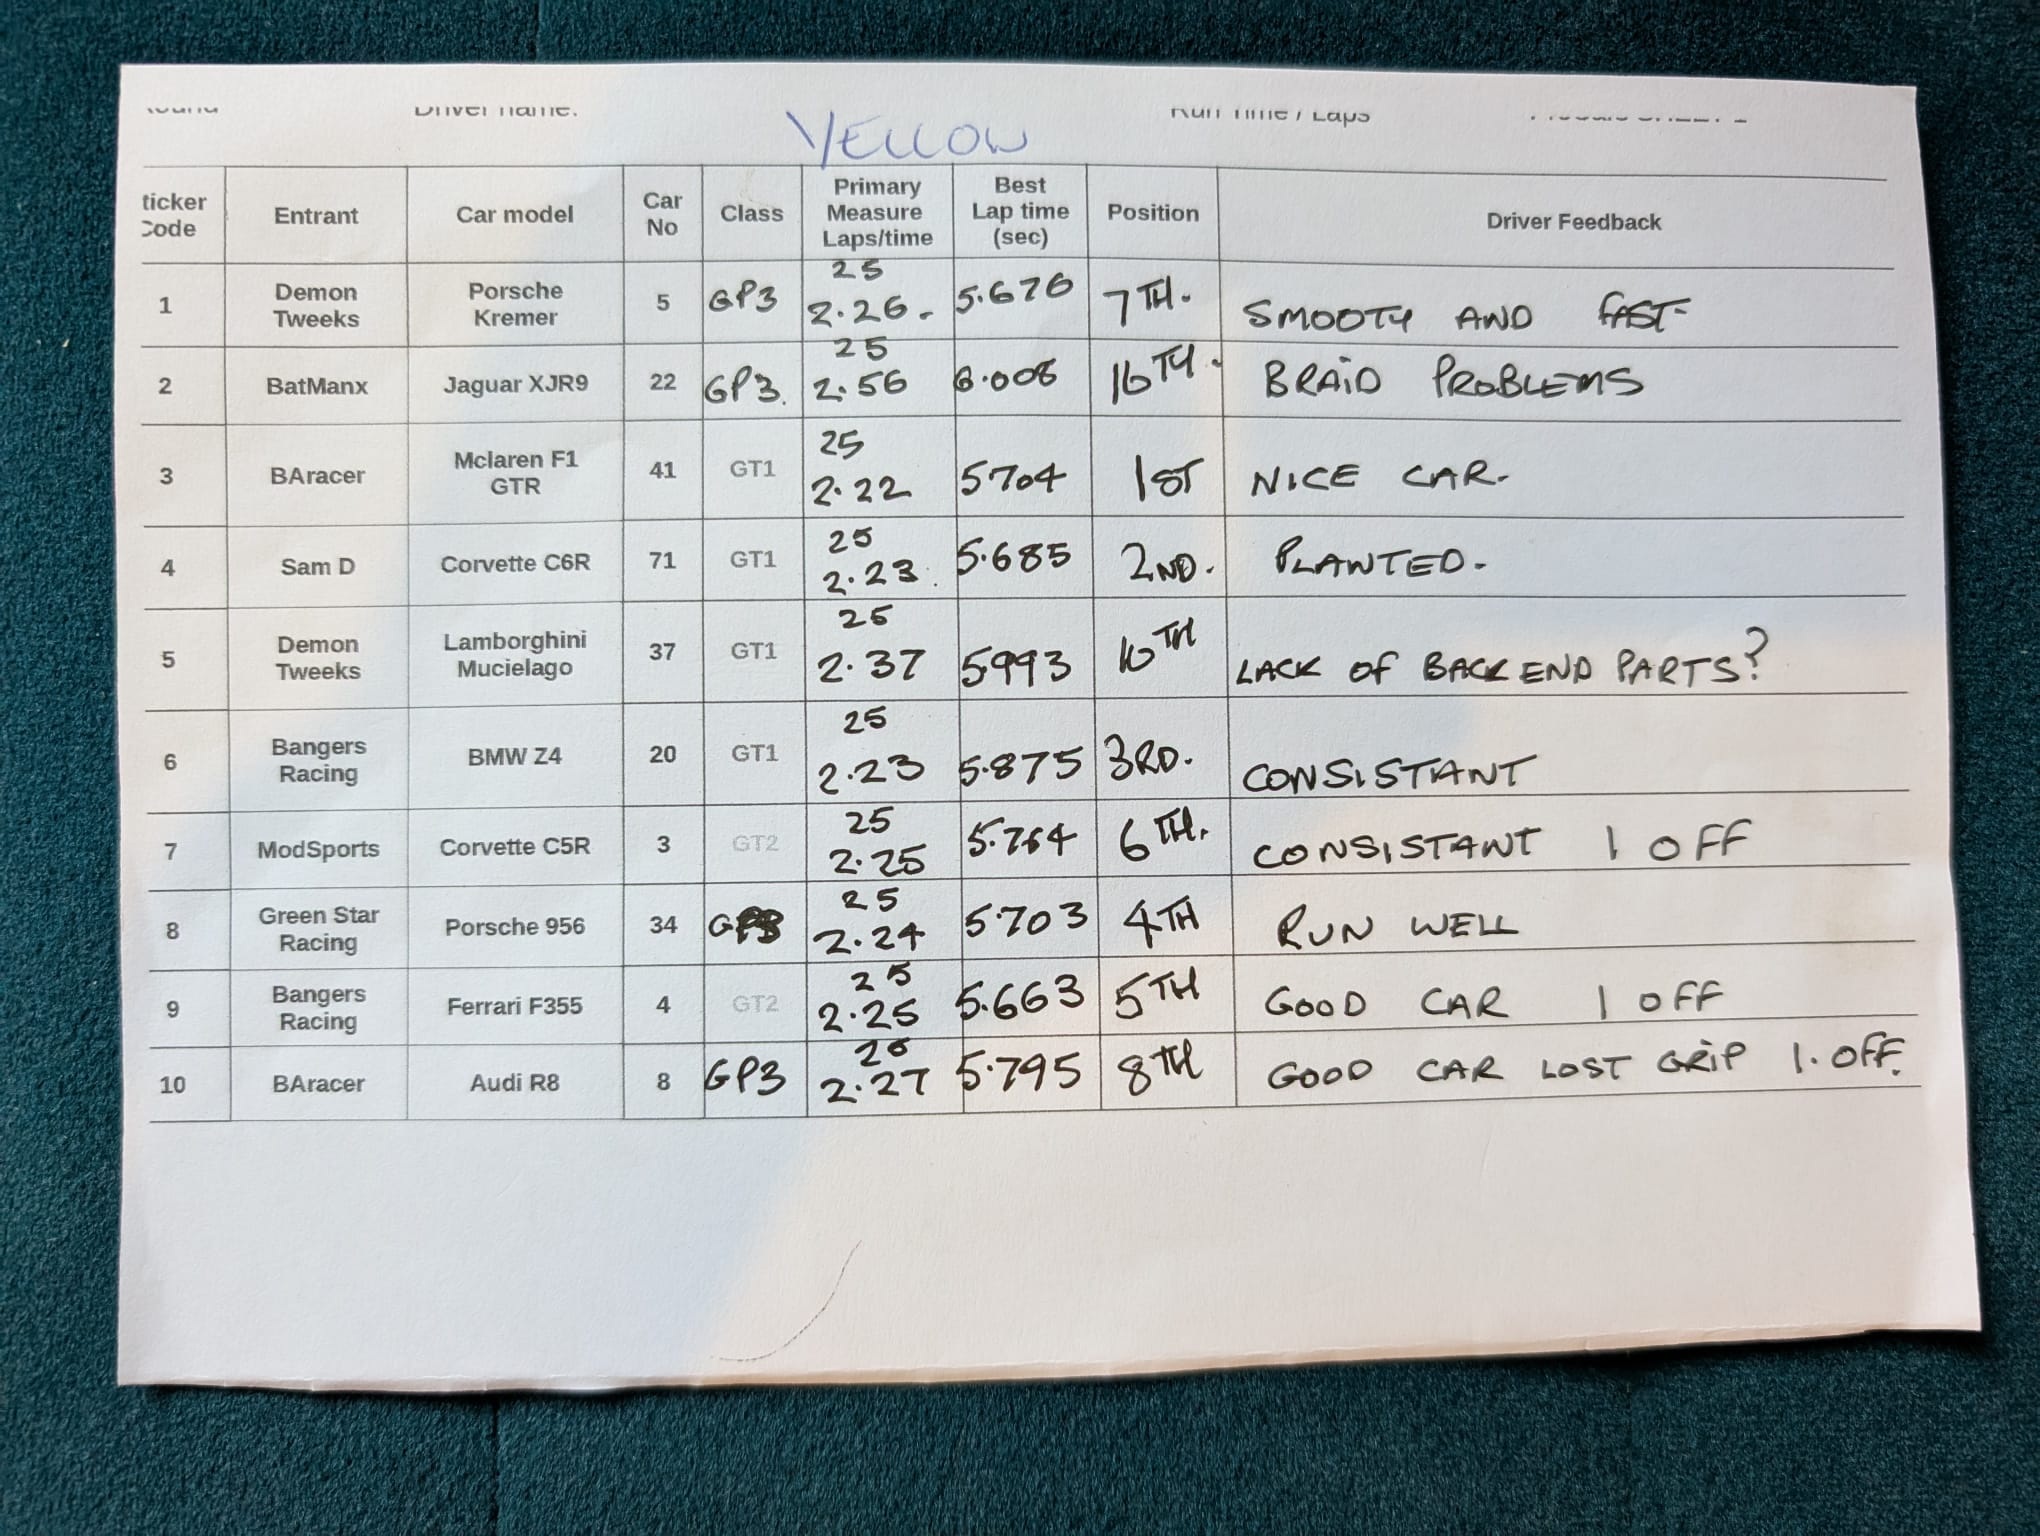 Round Driver name: Run Time / Laps
YELLOW
ticker Code Entrant Car model Car No Class Primary Measure Laps/time Best Lap time (sec) Position Driver Feedback
1 Demon Tweeks Porsche Kremer 5 GP3 25 2.26. 5.676 7TH. SMOOTY AND FAST
2 BatManx Jaguar XJR9 22 GP3. 25 2.56 6.008 16TH. BRAID PROBLEMS
3 BAracer Mclaren F1 GTR 41 GT1 25 2.22 5704 1ST NICE CAR.
4 Sam D Corvette C6R 71 GT1 25 2.23. 5.685 2ND. PLANTED.
5 Demon Tweeks Lamborghini Mucielago 37 GT1 25 2.37 5993 10TH LACK OF BACK END PARTS?
6 Bangers Racing BMW Z4 20 GT1 25 2.23 5.875 3RD. CONSISTANT
7 ModSports Corvette C5R 3 GT2 25 2.25 5.764 6TH. CONSISTANT 1 OFF
8 Green Star Racing Porsche 956 34 GP3 25 2.24 5.703 4TH RUN WELL
9 Bangers Racing Ferrari F355 4 GT2 25 2.25 5.663 5TH GOOD CAR 1 OFF
10 BAracer Audi R8 8 GP3 2.27 5.795 8TH GOOD CAR LOST GRIP 1. OFF.